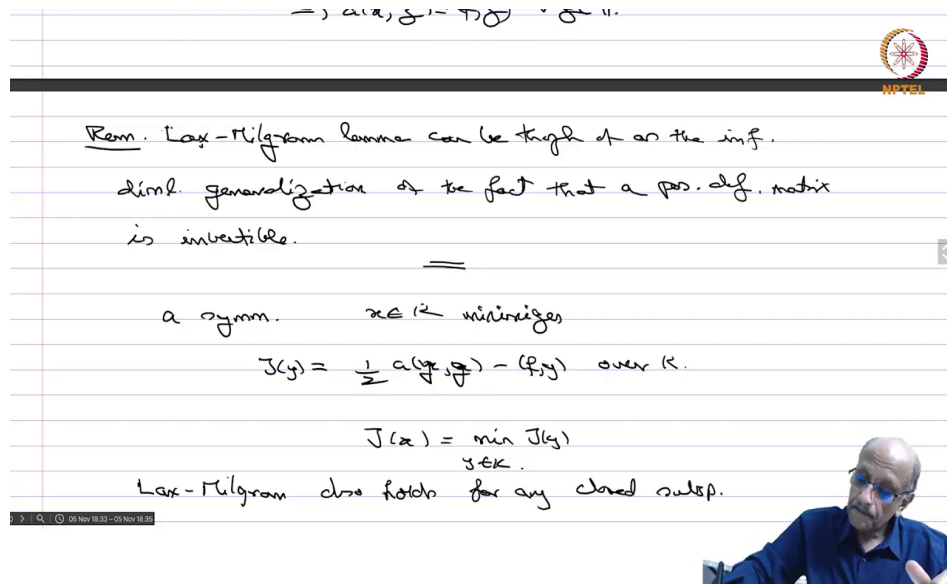 ⇒ a(x, y) = (f, y) ∀ y ∈ H.
NPTEL
Rem. Lax-Milgram lemma can be thogh of as the inf.
diml. generalization of the fact that a pos. def. matrix
is invertible.
a symm. x ∈ K minimizes
J(y) = 1/2 a(y, y) - (f, y) over K.
J(x) = min J(y)
y ∈ K.
Lax-Milgram also holds for any closed subsp.
05 Nov 18:33 - 05 Nov 18:35